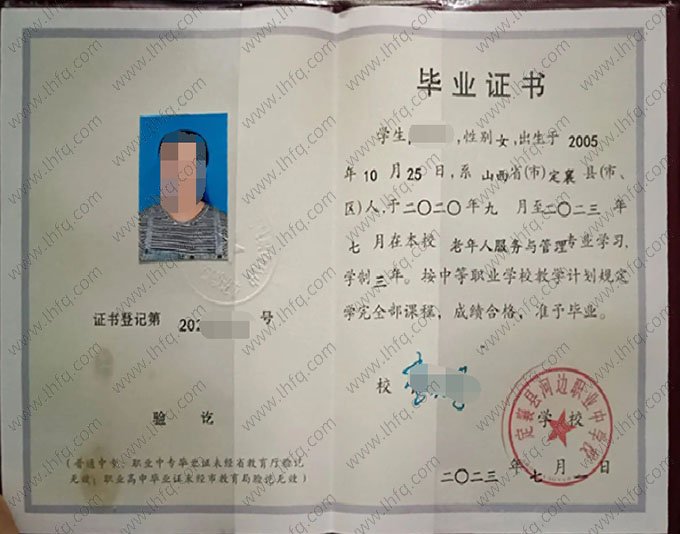 毕业证书
学生, ,性别女,出生于 2005
年10月25日,系 山西省(市)定襄 县(市、
区)人,于二〇二〇年九 月至二〇二三 年
七 月在本校 老年人服务与管理专业学习,
学制三年。按中等职业学校教学计划规定
学完全部课程,成绩合格,准予毕业。
证书登记第 202 号
校
学 校
定襄县河边职业中学校
二〇二三 年 七 月 一 日
验 讫
(普通中专、职业中专毕业证未经省教育厅验讫
无效;职业高中毕业证未经市教育局验讫无效)
www.lhfq.com